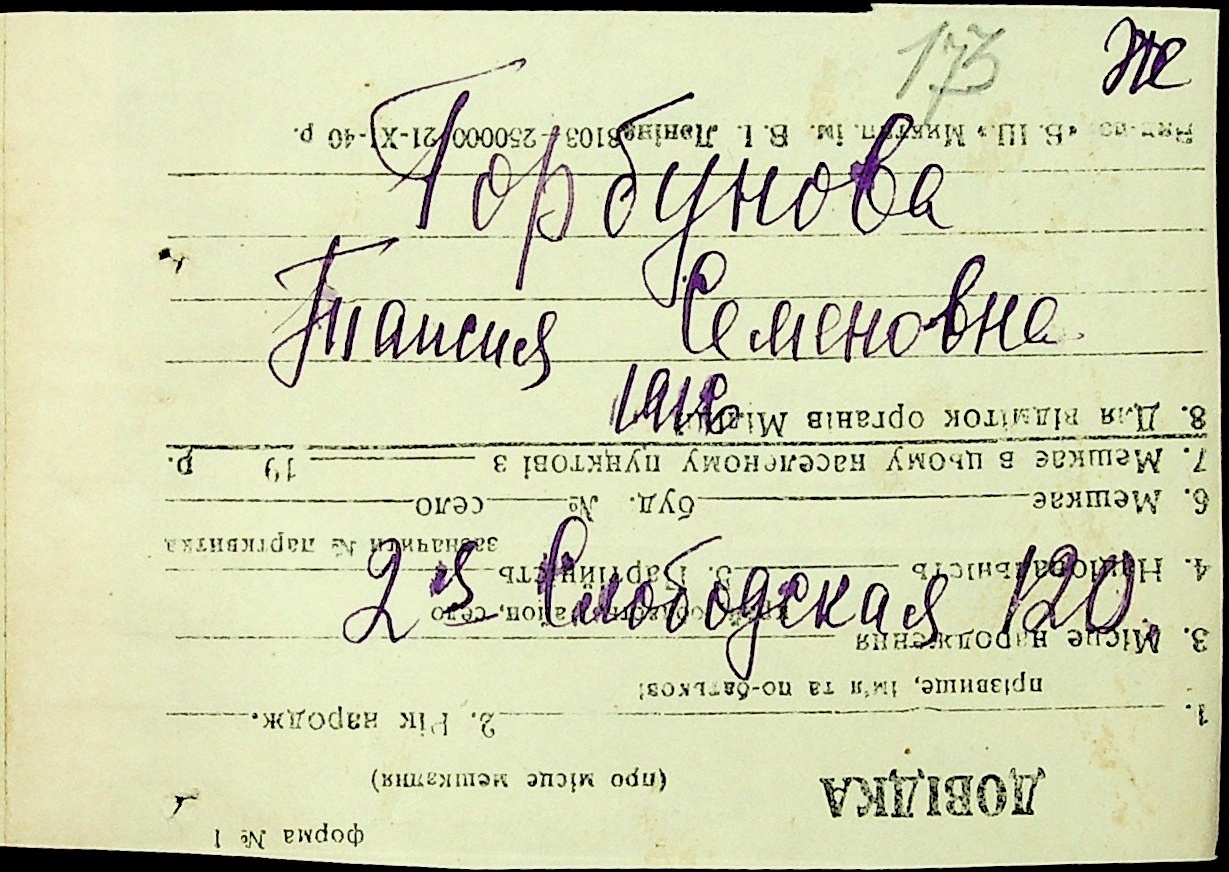 173 Же
Горбунова
Таисия Семеновна
1918
2 я Слободская 120.
форма № 1
ДОВІДКА
(про місце мешкання)
1.
2. Рік народж.
прізвище, ім'я та по-батькові
3. Місце народження
село
4. Національність
5. Партійність
зазначити № партквитка
6. Мешкає буд. № село
7. Мешкає в цьому населеному пунктові з 19 р.
8. Для відміток органів Міліції
В. Ш. Микол. ім. В. І. Леніна 8103-250000 21-XI-40 р.